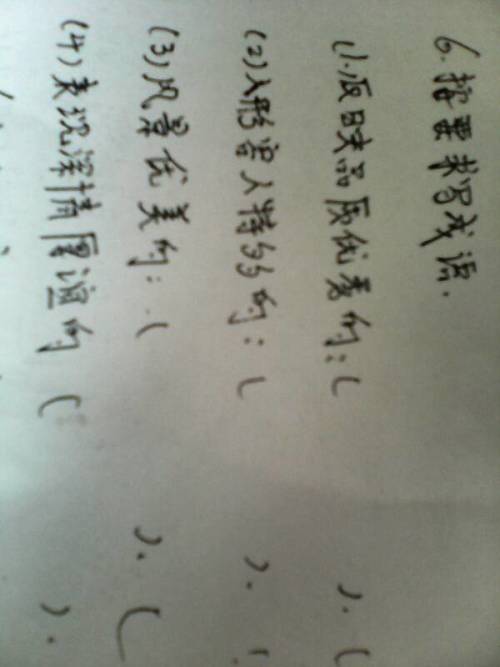 6.按要求写成语.
(1).反映品质优秀的:( ).(
(2)人形容人特多的:( ).(
(3)风景优美的:( ).(
(4)表现深情厚谊的( ).